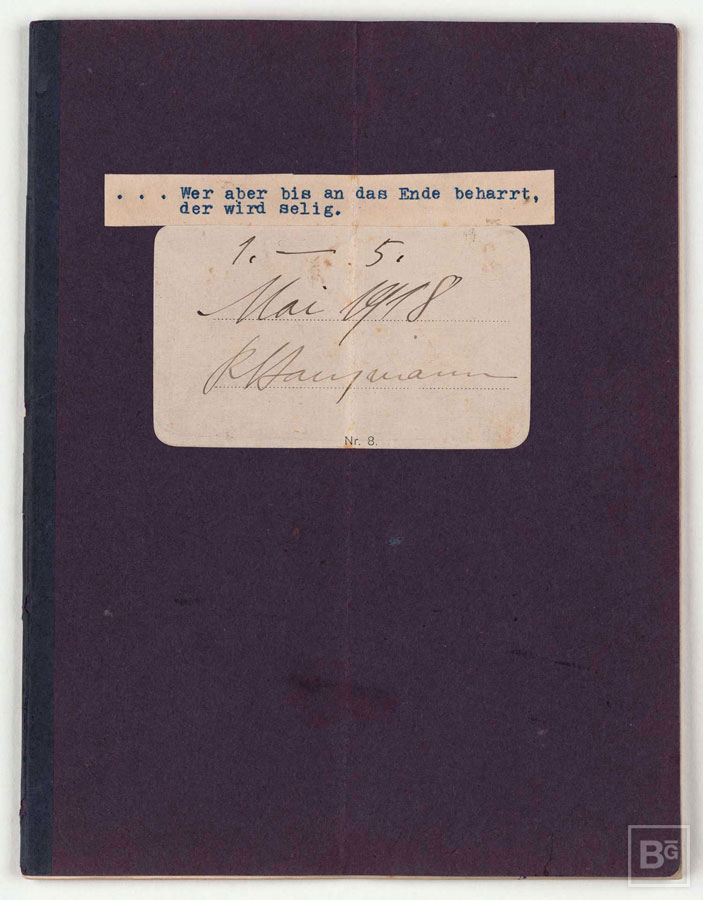 . . . Wer aber bis an das Ende beharrt,
der wird selig.
1. — 5.
Mai 1918
RHausmann
Nr. 8.
BG